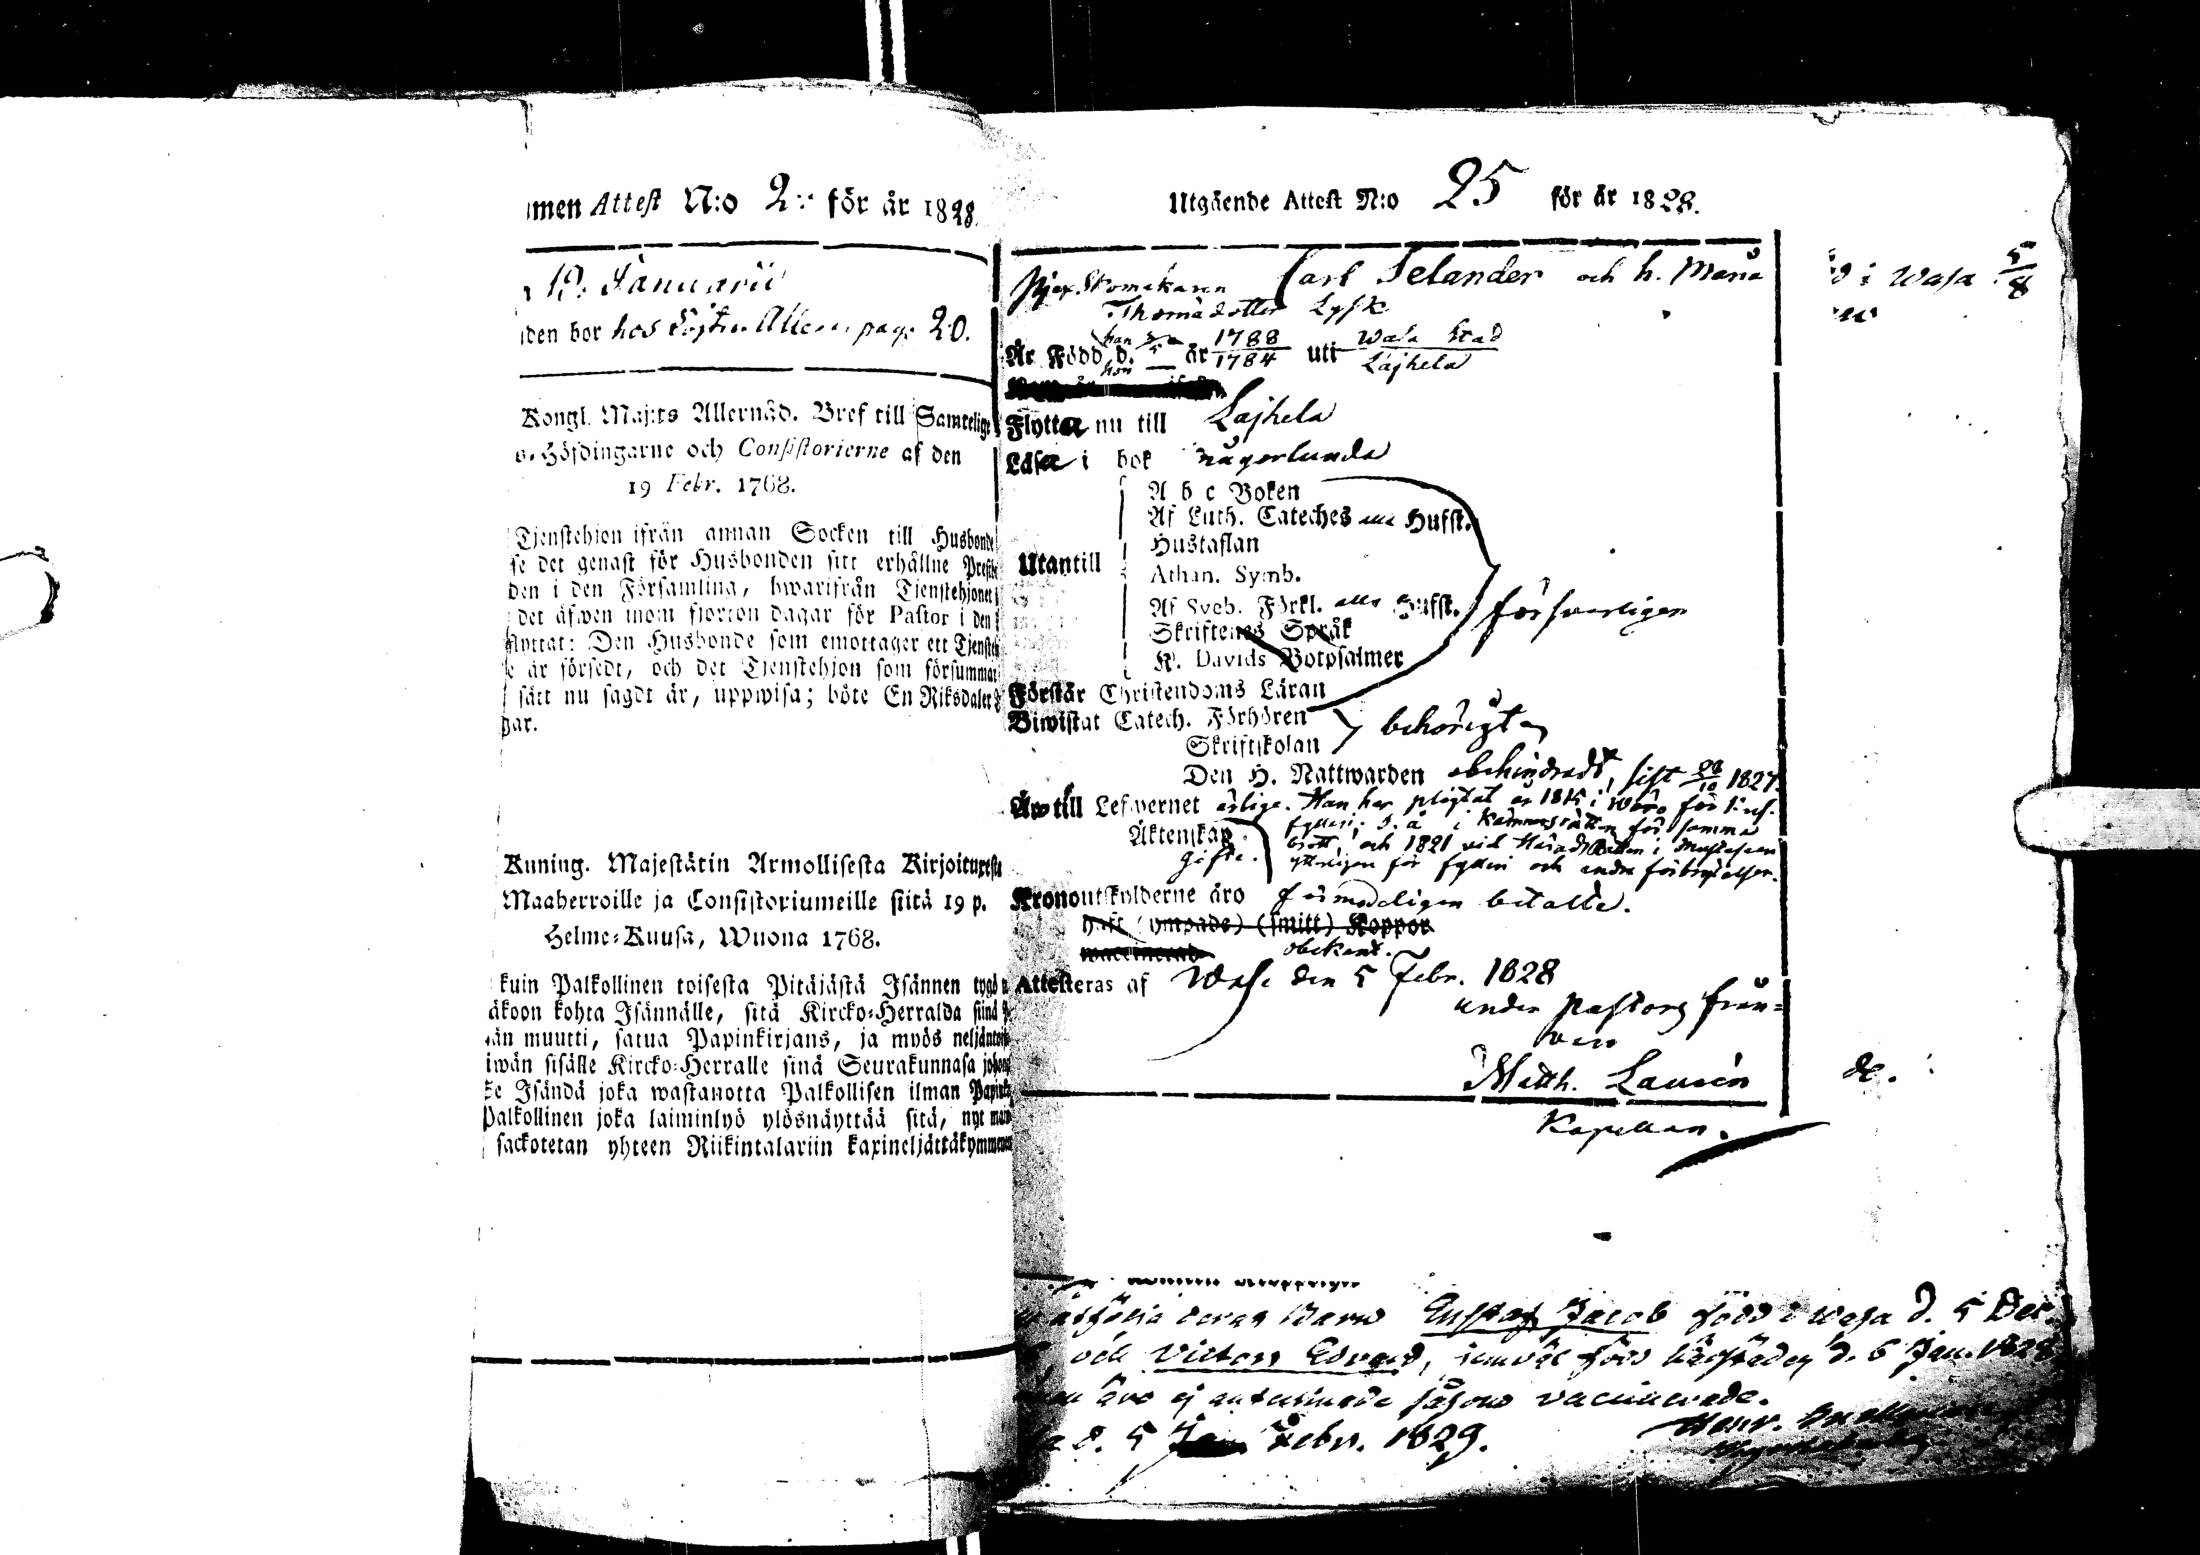 men Attest N:o 2 för år 1828.
19. Januarii
den bor hos pag. 20.
Kongl. Maj:ts Allernåd. Bref till Samtelige
s-Höfdingarne och Consistorierne af den
19 Febr. 1768.
Tjenstehjon ifrån annan Socken till Husbonde
se det genast för Husbonden sitt erhållne Preste
den i den Församling, hwarifrån Tjenstehjonet
det äfwen inom fjorton dagar för Pastor i den
flyttat: Den Husbonde som emottager ett Tjenste
e är försedt, och det Tjenstehjon som försummar
sätt nu sagdt är, uppwisa; böte En Riksdaler
gar.
Kuning. Majestätin Armollisesta Kirjoituxesta
Maaherroille ja Consistoriumeille siitä 19 p.
Helme-Kuusa, Wuona 1768.
kuin Palkollinen toisesta Pitäjästä Isännen tygö
äkoon kohta Isännälle, sitä Kircko-Herralda siinä
än muutti, satua Papinkirjans, ja myös neljäntoist
iwän sisälle Kircko-Herralle sinä Seurakunnasa johon
Se Isändä joka wastanotta Palkollisen ilman Papink
Palkollinen joka laiminlyö ylösnäyttää sitä, nyt main
sackotetan yhteen Riikintalariin kaxineljättäkymmenen
Utgående Attest N:o 25 för år 1828.
Skomakaren Carl Selander och h. Maria
Thomædotter Lysk
Är Född d. han 5 hon — år 1788 1784 uti Wasa Stad Lajhela
Flytta nu till Lajhela
Läsa i bok någorlunda
A b c Boken
Af Luth. Cateches alla Hufst.
Hustaflan
Utantill
Athan. Symb.
Af Sveb. Förkl. alla Hufst. försvarligen
Skriftenes Språk
K. Davids Botpsalmer
Förstår Christendoms Läran
Biwistat Catech. Förhören behörigt
Skriftskolan
Den H. Nattwarden obehindradt, sist 28/10 1827.
Äro till Lefwernet ärlige. Han har pligtat år 1815 i Wörå för
fylleri, d. å. i Kämnersrätten för samma
Äktenskap brott, och 1821 vid Häradsrätten i Mustasaari
Gifte. ytterligen för fylleri och andra förbrytelser.
Kronoutskylderne äro förmodeligen betalte.
haft (ympade) (smitt) Koppor
waccinerad obekant.
Attesteras af Wasa den 5 Febr. 1828
under Pastors från-
varo
Matth. Laurén
Kapellan.
i Wasa 5/8
de.
deras Barn Gustaf Jacob född i Wasa d. 5 Dec.
och Victor Edvard, född härstädes d. 6 Jan. 1828
äro ej antecknade såsom vaccinerade.
d. 5 Febr. 1829.